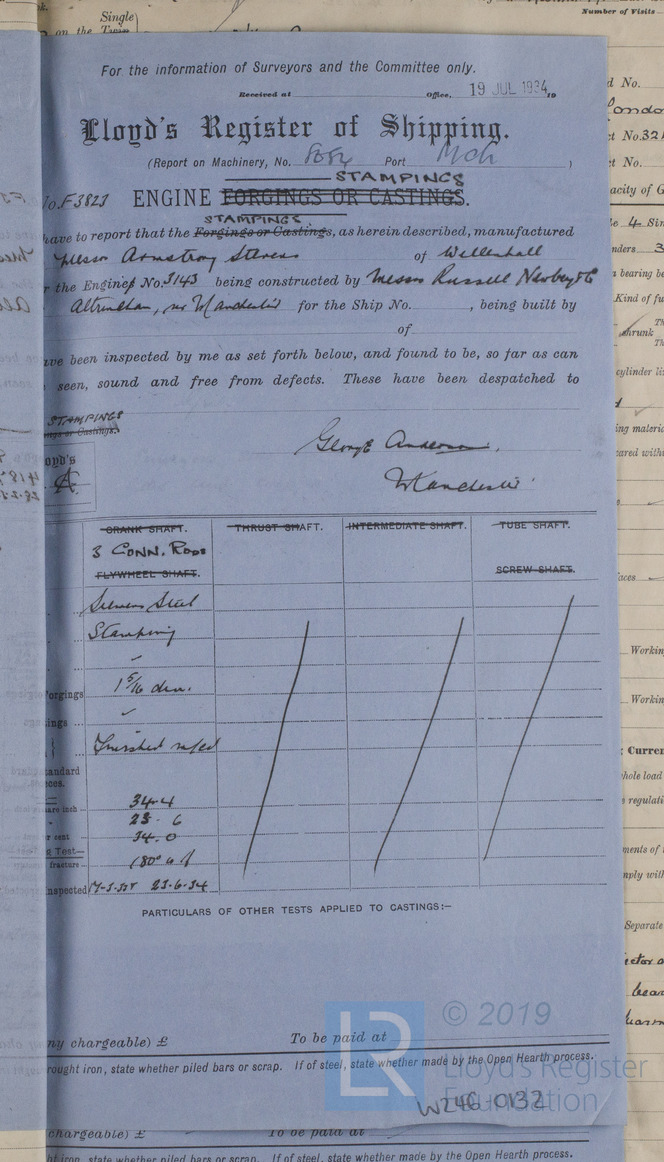 Single
on the
Number of Visits
For the information of Surveyors and the Committee only.
Received at Office, 19 JUL 1934 19
Lloyd's Register of Shipping.
(Report on Machinery, No. Port Mch )
STAMPINGS
No. F3823 ENGINE FORGINGS OR CASTINGS.
STAMPINGS
have to report that the Forgings or Castings, as herein described, manufactured
Messrs Armstrong Stevens of Willenhall
r the Engines No. 3143 being constructed by Messrs Russell Newbery & Co
Altrincham, nr Manchester for the Ship No. , being built by
of
ave been inspected by me as set forth below, and found to be, so far as can
seen, sound and free from defects. These have been despatched to
STAMPINGS
ngs or Castings.
George Anderson.
Manchester
oyd's
A
CRANK SHAFT. THRUST SHAFT. INTERMEDIATE SHAFT. TUBE SHAFT.
3 CONN. RODS
FLYWHEEL SHAFT. SCREW SHAFT.
Siemens Steel
Stamping
Forgings 1 5/16 dia.
ings ...
Finished
tandard
eces.
are inch 34.4
23.6
r cent 34.0
g Test—
fracture 180°
nspected 23.6.34
PARTICULARS OF OTHER TESTS APPLIED TO CASTINGS:—
ny chargeable) £ To be paid at
rought iron, state whether piled bars or scrap. If of steel, state whether made by the Open Hearth process.
© 2019
LR
Lloyd's Register
Foundation
W246-0132
chargeable) £ To be paid at
ht iron, state whether piled bars or scrap. If of steel, state whether made by the Open Hearth process.
d No.
t No.
acity of G
4 Sin
nders 3
n bearing be
Kind of fu
shrunk
cylinder li
ing materia
ared withi
aces
Workin
Workin
Curren
hole load
regulati
ments of
mply with
Separate